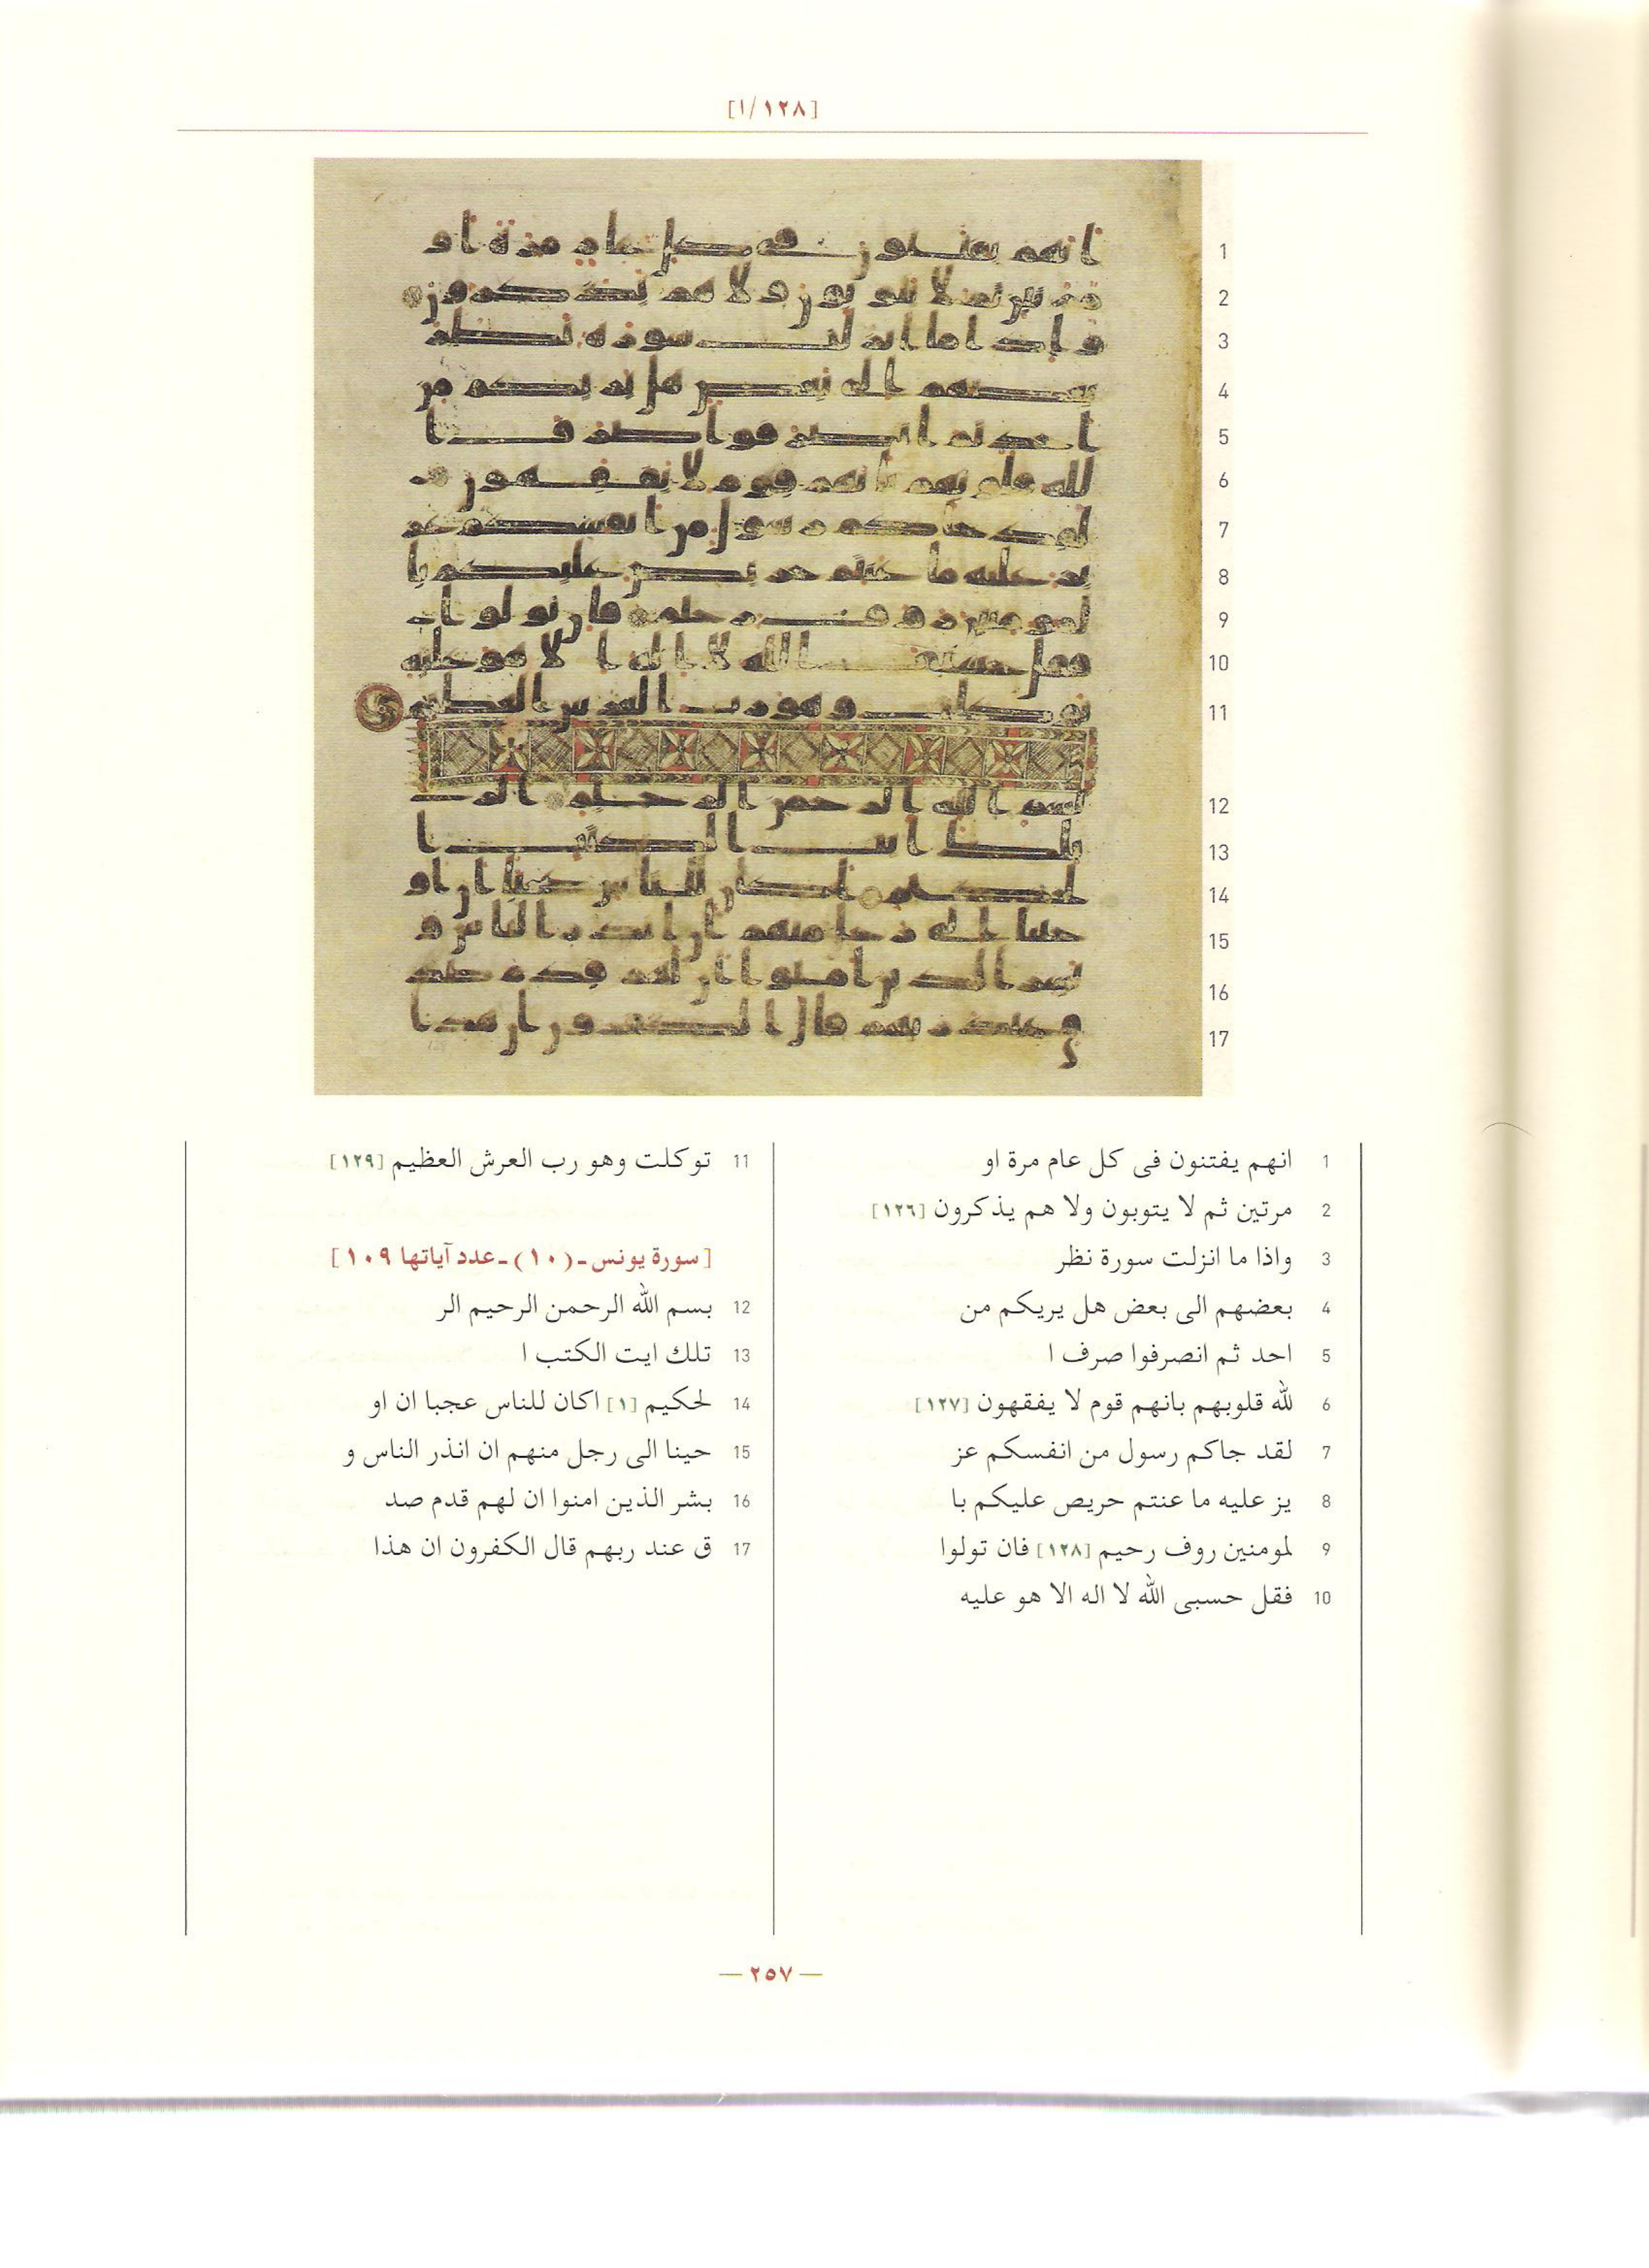 [١/١٢٨]
1 انهم يفتنون فى كل عام مرة او
2 مرتين ثم لا يتوبون ولا هم يذكرون [١٢٦]
3 واذا ما انزلت سورة نظر
4 بعضهم الى بعض هل يريكم من
5 احد ثم انصرفوا صرف ا
6 لله قلوبهم بانهم قوم لا يفقهون [١٢٧]
7 لقد جاكم رسول من انفسكم عز
8 يز عليه ما عنتم حريص عليكم با
9 لمومنين روف رحيم [١٢٨] فان تولوا
10 فقل حسبى الله لا اله الا هو عليه
11 توكلت وهو رب العرش العظيم [١٢٩]
[سورة يونس - (١٠) - عدد آياتها ١٠٩]
12 بسم الله الرحمن الرحيم الر
13 تلك ايت الكتب ا
14 لحكيم [١] اكان للناس عجبا ان او
15 حينا الى رجل منهم ان انذر الناس و
16 بشر الذين امنوا ان لهم قدم صد
17 ق عند ربهم قال الكفرون ان هذا
— ٢٥٧ —